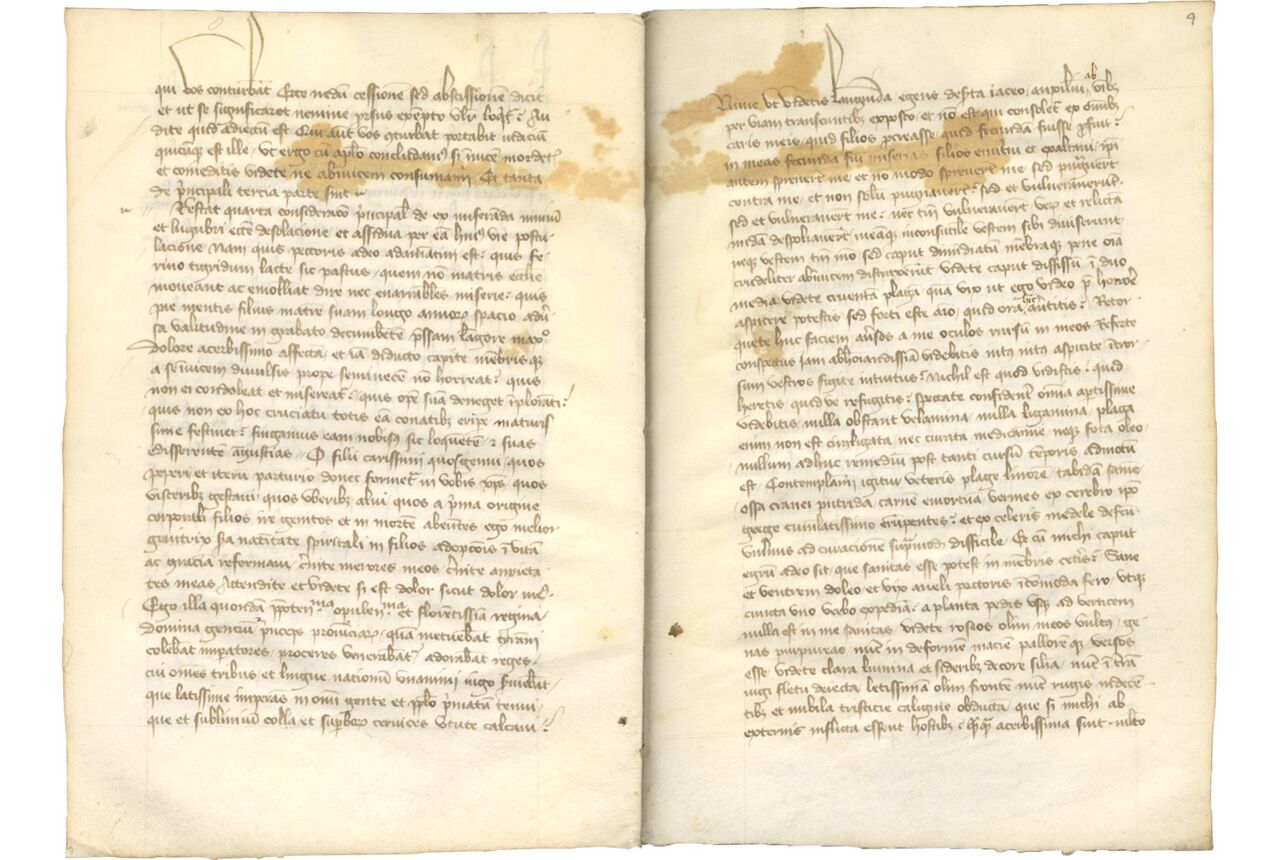 qui vos conturbāt Ecce nedū cessionē sed abscissionē dicit
et ut se significaret nemine prsus excepto vlr loqt᷑ : Au
dite quid adiectū est Qui aut vos ɔturbat portabit iudiciū
quicūqꝫ est ille / vt ergo cū aplo concludam᷒ si inuicē mordet᷑
et comeditis videte ne abinuicem consumami Et tanta
de pͥncipali tercia parte sint
Restat quarta consideracō pͥncipal de ex miserāda nimiū
et lugubri ecce desolacione et assidua per eā hui᷒ vie postu
lacione Nam quis pectoris adeo adamātini est : quis fe
rino tigridum lacte sic pastus / quem nō matris ecclie
moueant ac emolliāt dire nec enarrabiles miserie : quis
pie mentis filius matrē suam longo annorꝫ spacio adū
sa valitudine in grabato decumbētē pssam lāgore maxº
dolore acerbissimo affectā / et iā diducto capite mēbrisqꝫ
a seīuicem diuulsis prope seminecē nō horreat : quis
non ei condoleat et misereat᷑ : quis opē suā deneget īplorāti :
quis non ex hoc cruciatu totis eā conatibꝫ eripe maturis
sime festinet : fingamus eam nobisqꝫ sic loquētē ⁊ suas
edisserentē āgustias / O filii carissimi quos genui / quos
peperi et iterū parturio donec formet᷑ in vobis xp̄s quos
visceribꝫ gestaui / quos vberibꝫ alui quos a pͥma origine
corporali filios ire genitos et in mortē abeūtes ego melior
genitrix sa natiitate spiritali in filios adopcōis ī vitā
ac gracia reformaui / cͥnite merores meos / cͥnite anxieta
tes meas Attendite et videte si est dolor sicut dolor me᷒ .
Ego illa quondā ppotenͭma opulenͭma et florētissīa regina /
domina genciū pͥnceps prouīciarꝫ / quā metuebāt tirāni
colebāt impatores / proceres venerabāt adorabāt reges .
cui omēs tribus et lingue nacionū vnanimi iugo suiebāt .
que latissime imperās in omī gente et pplo pͥmatū tenui .
que et sublimiū colla et suꝑborꝫ ceruices vͥtute calcaui :
9
Nunc vt videtis languida / egens desͭta iaceo / auxiliū ab oibꝫ
per viam transeuntibꝫ exposto / et nō est qui consolet᷑ ex omibꝫ
caris meis / quid filios procreasse / quid fecundā fuisse pfuit :
in meas fecunda fui miserias filios enutriui et exaltaui / ipi
autem spreuerūt me et nō modo spreuerūt me sed pugnauerūt
contra me / et non solū pugnauerūt / sed et vulnerauerūt .
sed et vulnerauerūt me / nec tm̄ vulnerauerūt verꝫ et relictā
nudā despoliauerūt / meāqꝫ inconsutile vestem sibi diuiserunt /
neqꝫ vestem tm̄ mō sed caput dimidiatū mēbraqꝫ pene oīa
crudeliter abinuicem distraxerūt videte caput discissū ī duo
media videte cruentā plagā quā vix ut ego video p̄ horrore
aspicere potestis sed forti este aīo / quid ora huc auertitis : Retor
quete huc faciem auersos a me oculos rursū in meos Referte
conspectus iam abhoriandissīa videbitis intꝫ intꝫ aspicite ītror
sum vestros figite intuitus : Nichil est quod vidistis : quid
heretis / quid ve refugitis : spectate confidenͭ omīa aptissime
videbitis / nulla obstant velamina / nulla ligamina / plaga
enim non est circūligata / nec curata medicamīe / neqꝫ fota oleo .
nullum adhuc remediū post tanti cursū tēporis admotū
est / Contemplami igitur veteris plage liuorē / tabidā saniē
ossa cranei putrida / carnē emortuā vermes ex cerebro ipo
grege cumulatissimo erūpentes : et ex celeris medele defcu
vulnus ad curacionē supͣmodū difficile Et cū michi caput
egrū adeo sit / que sanitas esse potest in mēbris cetis : Sane
et ventrem doleo / et vix aneli pectoris īcōmoda fero / vtqꝫ
cūcta vno verbo expediā . a planta pedis vsqꝫ ad verticem
nulla est in me sanitas / videte roseos olim meos vultꝫ / ge
nas purpureas / nūc in deformē maciē pallorēqꝫ versos
esse / videte clara lumina et sideribꝫ decore silia / nūc ī trā
iugi fletu deiecta / letissimā olim frontē nūc rugis indecē
tibꝫ et nubila tristicie caligine obducta / que si michi ab
externis inflicta essent hostibꝫ / quāqꝫ acerbissima sint / mlto